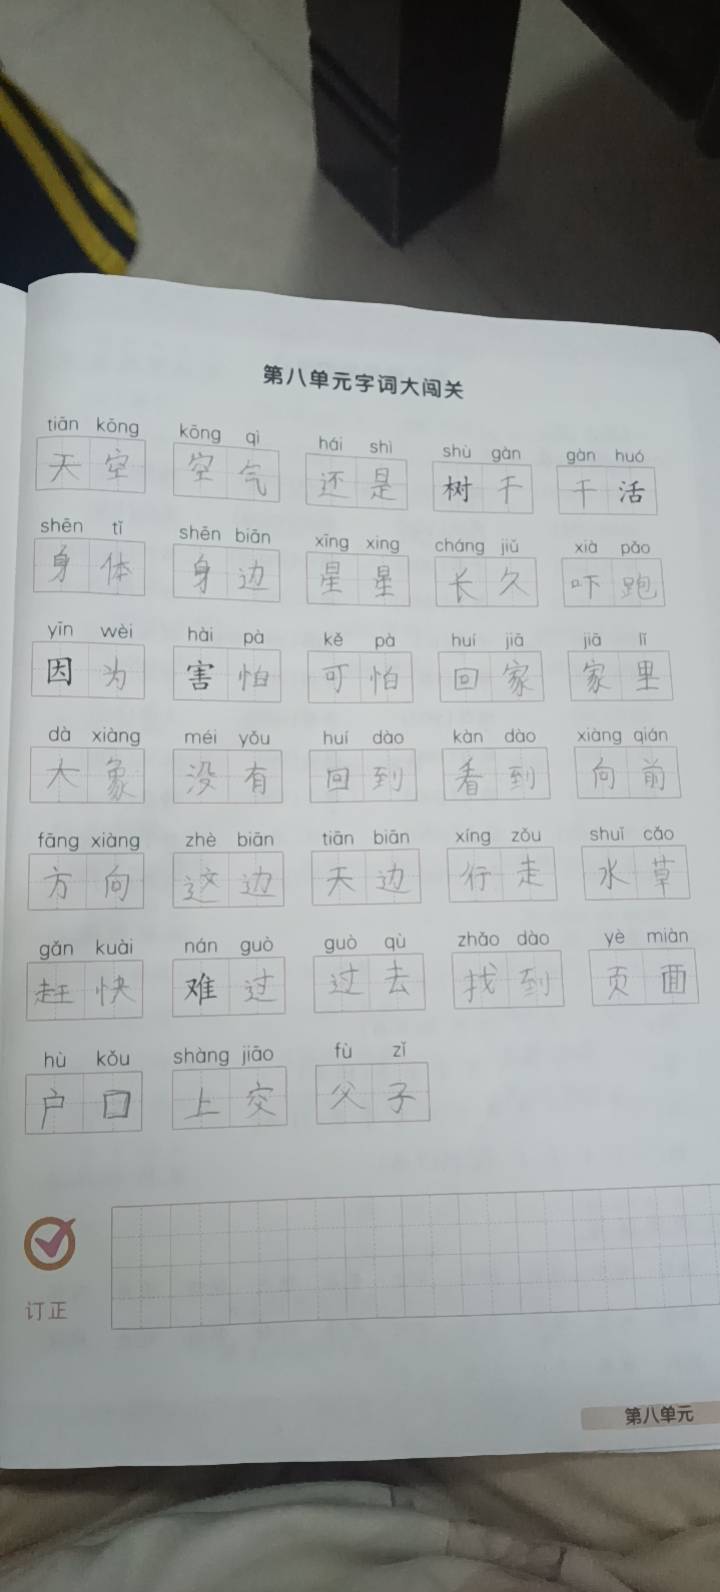 第八单元字词大闯关
tiān kōng kōng qì hái shì shù gàn gàn huó
天空 空气 还是 树干 干活
shēn tǐ shēn biān xīng xing cháng jiǔ xià pǎo
身体 身边 星星 长久 吓跑
yīn wèi hài pà kě pà huí jiā jiā lǐ
因为 害怕 可怕 回家 家里
dà xiàng méi yǒu huí dào kàn dào xiàng qián
大象 没有 回到 看到 向前
fāng xiàng zhè biān tiān biān xíng zǒu shuǐ cǎo
方向 这边 天边 行走 水草
gǎn kuài nán guò guò qù zhǎo dào yè miàn
赶快 难过 过去 找到 页面
hù kǒu shàng jiāo fù zǐ
户口 上交 父子
订正
第八单元